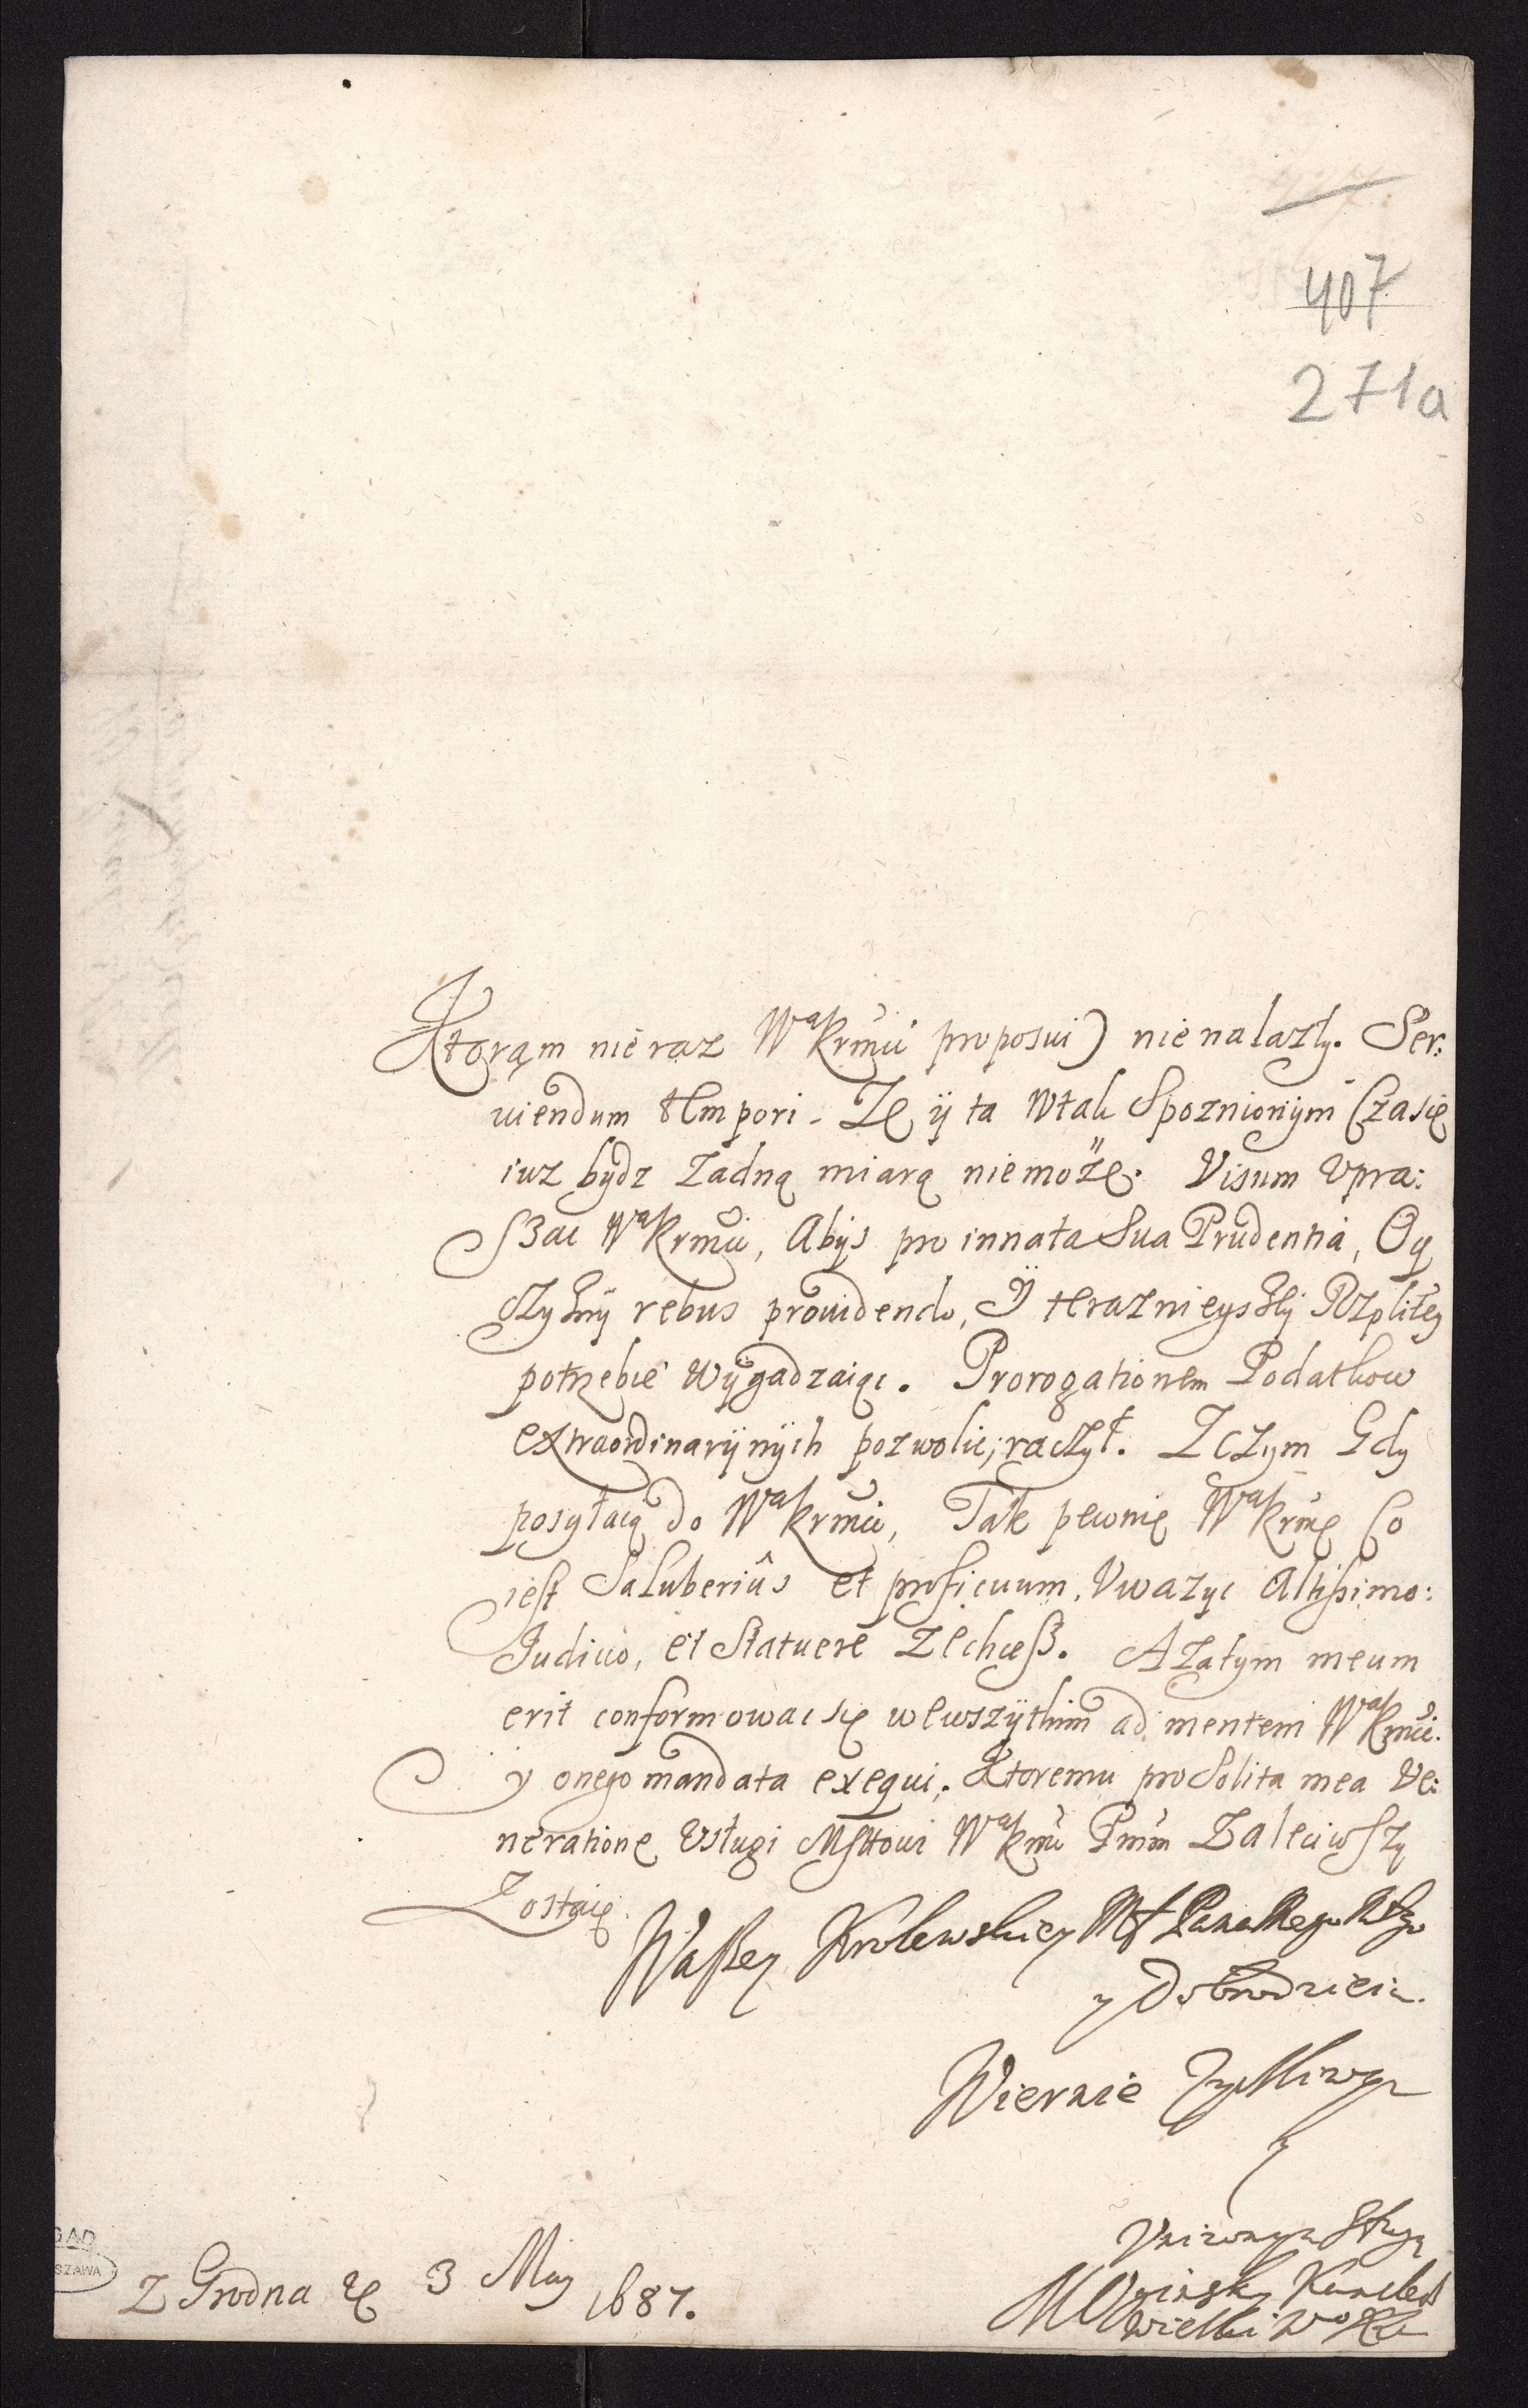 407
271a
Ktorąm nieraz WaKrmci proposui) nienalazły. Ser:
uiendum tempori. Ze ij ta wtak Spoznionym Czasie
iuz bydz zadną miarą niemoże. Visum Vpra:
szac WaKrmci, Abys pro innata Sua Prudentia, Oy
czyzny rebus prouidendo, Y terazniejszej Rzpltey
potrzebie wygadzaiąc. Prorogationem Podatkow
extraordinaryinych pozwolic, raczył. Z Czym Gdy
posyłaią do WaKrmci, Tak pewnie WaKrmc Co
iest Saluberius et proficuum, Vwazyc Altissimo:
Judicio, et Statuere zechcesz. A zatym meum
erit conformowac się wewszytkim ad mentem WaKrmci.
y onego mandata exequi. Ktoremu pro Solita mea Ve:
neratione Vsługi Msttowi WaKrmci Pnm Zaleciwszy
Zostaię.
Waszey Krolewskiey Mci Pana Mego Mgo
y Dobrodzieia.
Wiernie Zyczliwym
y
Vnizonym Sługą
MOginsky Kanclerz
Wielki WoXLi
Z Grodna de 3 May 1687.
GAD
SZAWA